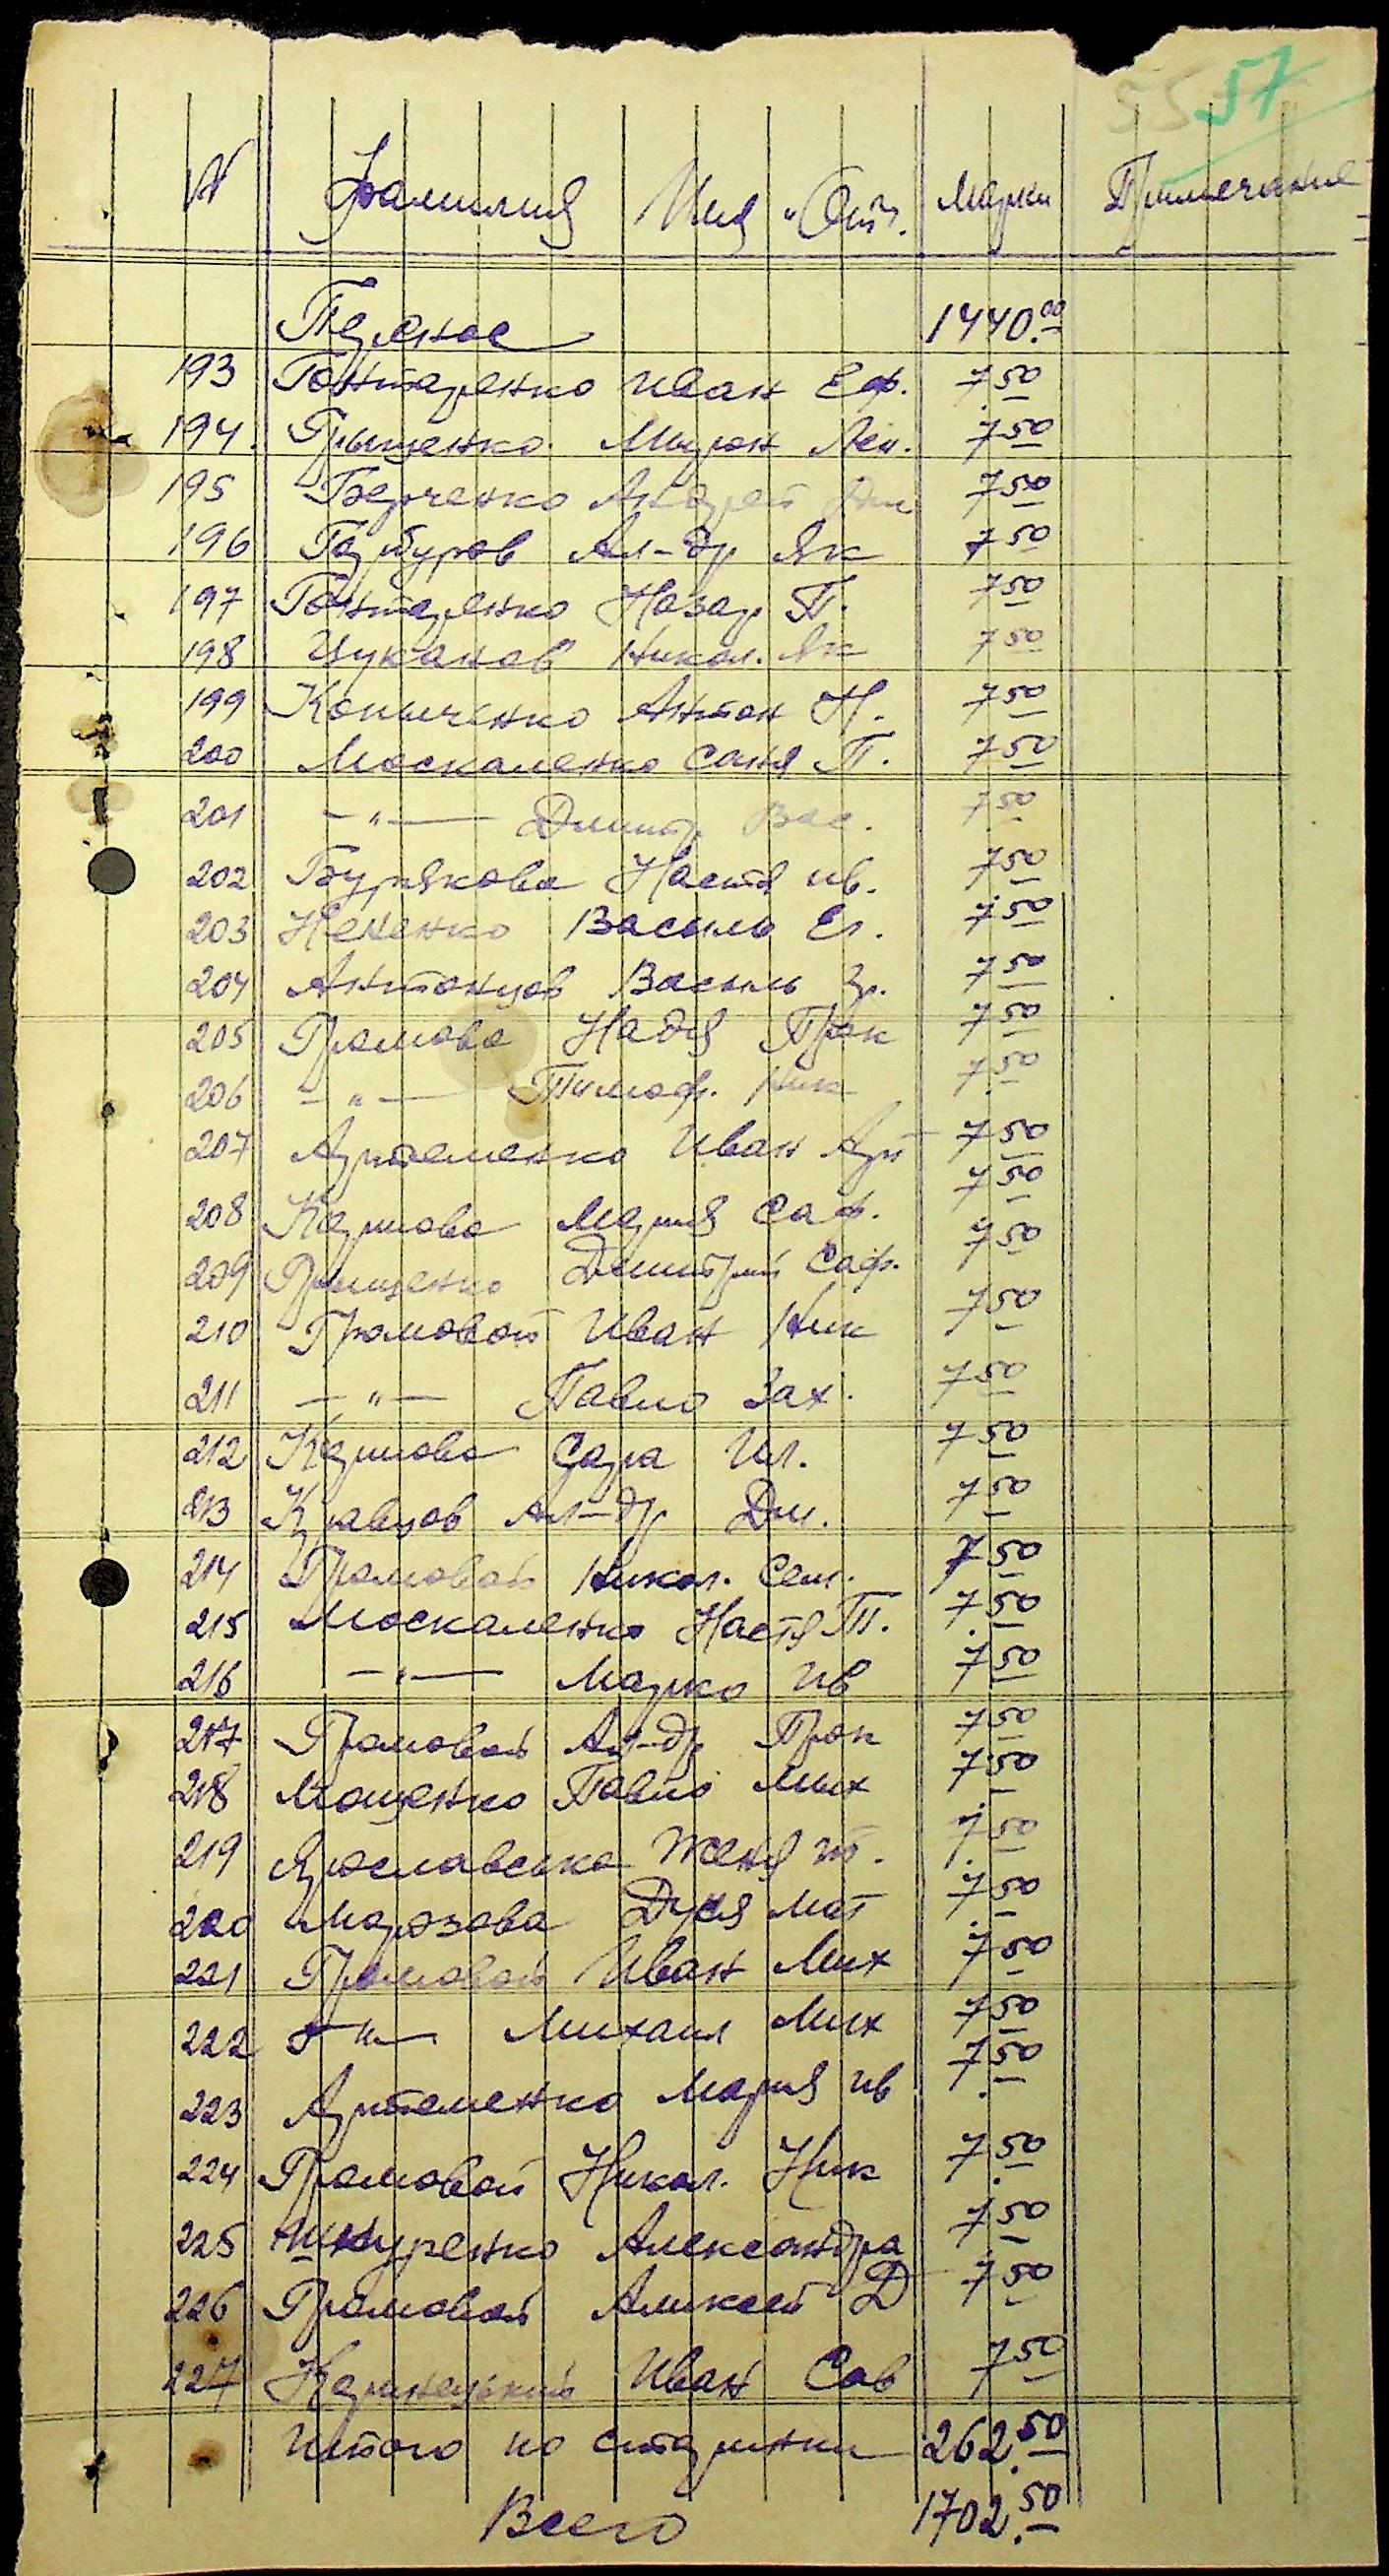 55 57
№ Фамилия Имя "От". Марки Примечание
Перенос 1440.00
193 Гонтаренко Иван Еф. 7.50
194. Грищенко Мирон Лен. 7.50
195 Берченко Андрей Дм 7.50
196 Гарбуров Ал-др Як 7.50
197 Гонтаренко Назар П. 7.50
198 Цуканов Никол. Як 7.50
199 Коныченко Антон Н. 7.50
200 Москаленко Саня П. 7.50
201 —"— Дмитр. Вас. 7.50
202 Бурякова Настя ив. 7.50
203 Нененко Василь Ег. 7.50
204 Антонцов Василь Гр. 7.50
205 Громова Надя Прок 7.50
206 —"— Тимоф. Ник 7.50
207 Артеменко Иван Арт 7.50
208 Карпова Мария Саф. 7.50
209 Грищенко Дмитрий Саф. 7.50
210 Громовой Иван Ник 7.50
211 —"— Павло Зах. 7.50
212 Карпова Сара Ил. 7.50
213 Кравцов Ал-др Дм. 7.50
214 Громовой Никол. Сем. 7.50
215 Москаленко Настя Т. 7.50
216 —"— Марко ив 7.50
217 Громовой Ал-др Прок 7.50
218 Мощенко Павло Мих 7.50
219 Ярославська Женя 7.50
220 Морозова Дуся Мат 7.50
221 Громовой Иван Мих 7.50
222 —"— Михаил Мих 7.50
223 Артеменко Мария ив 7.50
224 Громовой Никол. Ник 7.50
225 Шкуренко Александра 7.50
226 Громовой Алексей Д 7.50
227 Иван Сав 7.50
Итого по странички 262.50
Всего 1702.50